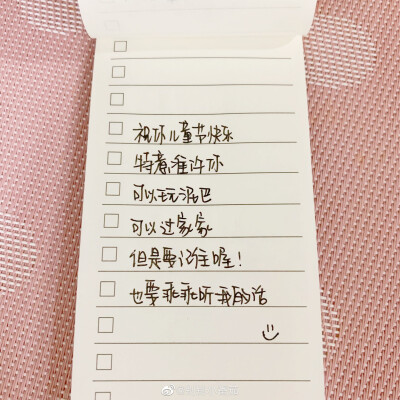 祝你儿童节快乐
特意准许你
可以玩泥巴
可以过家家
但是要洗手喔！
也要乖乖听我的话